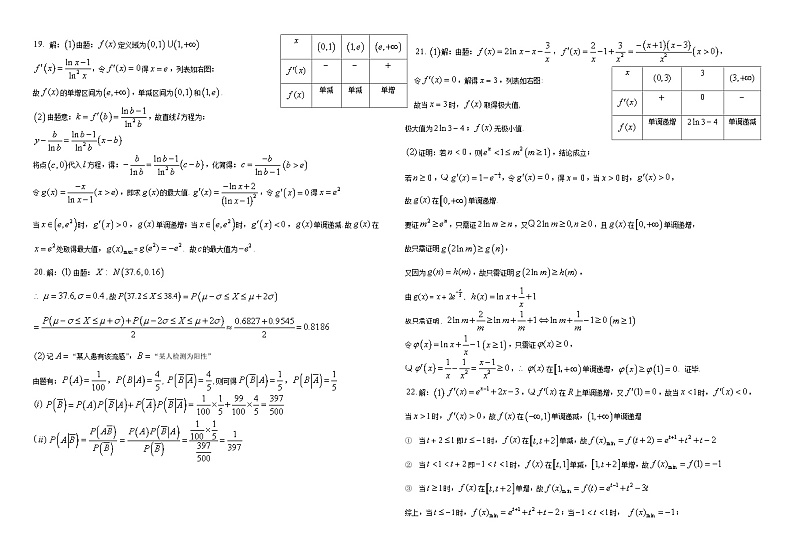 19. 解：(1)由题：f(x)定义域为(0,1)∪(1,+∞)
f'(x)=(ln x-1)/(ln² x)，令f'(x)=0得x=e，列表如右图：
x (0,1) (1,e) (e,+∞)
f'(x) - - +
f(x) 单减 单减 单增
故f(x)的单增区间为(e,+∞)，单减区间为(0,1)和(1,e).
(2)由题意：k=f'(b)=(ln b-1)/(ln² b)，故直线l方程为：
y-b/(ln b)=(ln b-1)/(ln² b)(x-b)
将点(c,0)代入l方程，得：-b/(ln b)=(ln b-1)/(ln² b)(c-b)，化简得：c=-b/(ln b-1)(b>e)
令g(x)=-x/(ln x-1)(x>e)，即求g(x)的最大值. g'(x)=(-ln x+2)/(ln x-1)²，令g'(x)=0得x=e²
当x∈(e,e²)时，g'(x)>0，g(x)单调递增；当x∈(e,e²)时，g'(x)<0，g(x)单调递减. 故g(x)在
x=e²处取得最大值，g(x)max=g(e²)=-e². 故c的最大值为-e².
20. 解：(1)由题：X : N(37.6,0.16)
∴ μ=37.6,σ=0.4，故P(37.2≤X≤38.4)=P(μ-σ≤X≤μ+2σ)
=(P(μ-σ≤X≤μ+σ)+P(μ-2σ≤X≤μ+2σ))/2≈(0.6827+0.9545)/2=0.8186
(2)记A=“某人患有该流感”，B=“某人检测为阳性”
由题有：P(A)=1/100，P(B|A)=4/5，P(B̅|A̅)=4/5，则可得P(B̅|A)=1/5，P(B|A̅)=1/5
(i) P(B̅)=P(A)P(B̅|A)+P(A̅)P(B̅|A̅)=1/100×1/5+99/100×4/5=397/500
(ii) P(A|B̅)=P(AB̅)/P(B̅)=P(A)P(B̅|A)/P(B̅)=(1/100×1/5)/(397/500)=1/397
21. (1)解：由题：f(x)=2ln x-x-3/x，f'(x)=2/x-1+3/x²=-(x+1)(x-3)/x²(x>0)，
令f'(x)=0，解得x=3，列表如右图：
x (0,3) 3 (3,+∞)
f'(x) + 0 -
f(x) 单调递增 2ln3-4 单调递减
故当x=3时，f(x)取得极大值，
极大值为2ln3-4；f(x)无极小值.
(2)证明：若n<0，则eⁿ<1≤m²(m≥1)，结论成立；
若n≥0，Q g'(x)=1-e^(-x/2)，令g'(x)=0，得x=0，当x>0时，g'(x)>0，
故g(x)在[0,+∞)单调递增.
要证m²≥eⁿ，只需证2ln m≥n，又Q 2ln m≥0,n≥0，且g(x)在[0,+∞)单调递增，
故只需证明g(2ln m)≥g(n)，
又因为g(n)=h(m)，故只需证明g(2ln m)≥h(m)，
由g(x)=x+2e^(-x/2)，h(x)=ln x+1/x+1
故只需证明：2ln m+2/m≥ln m+1/m+1⇔ln m+1/m-1≥0(m≥1)
令φ(x)=ln x+1/x-1(x≥1)，只需证φ(x)≥0，
Q φ'(x)=1/x-1/x²=(x-1)/x²≥0，∴ φ(x)在[1,+∞)单调递增，φ(x)≥φ(1)=0. 证毕.
22. 解：(1) f'(x)=e^(x-1)+2x-3，Q f'(x)在R上单调递增，又f'(1)=0，故当x<1时，f'(x)<0，
当x>1时，f'(x)>0，故f(x)在(-∞,1)单调递减，(1,+∞)单调递增
① 当t+2≤1即t≤-1时，f(x)在[t,t+2]单减，故f(x)min=f(t+2)=e^(t+1)+t²+t-2
② 当t<1<t+2即-1<t<1时，f(x)在[t,1]单减，[1,t+2]单增，故f(x)min=f(1)=-1
③ 当t≥1时，f(x)在[t,t+2]单增，故f(x)min=f(t)=e^(t-1)+t²-3t
综上，当t≤-1时，f(x)min=e^(t+1)+t²+t-2；当-1<t<1时，f(x)min=-1；